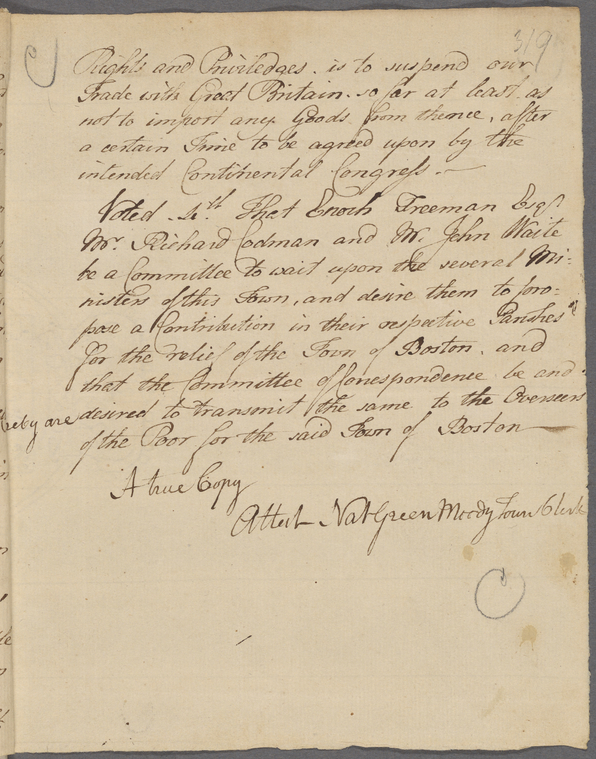 319
Rights and Priviledges. is to suspend our
Trade with Great Britain. so far at least as
not to import any Goods from thence, after
a certain Time to be agreed upon by the
intended Continental Congress.—
Voted. 4.th That Enoch Freeman Esqr
Mr. Richard Codman and Mr. John Waite
be a Committee to wait upon the several Mi=
nisters of this Town, and desire them to pro=
pose a Contribution in their respective Parishes
for the relief of the Town of Boston. and
that the Committee of Correspondence be and
hereby are desired to transmit the same to the Overseers
of the Poor for the said Town of Boston—
A true Copy
Attest Nat Green Moody Town Clerk